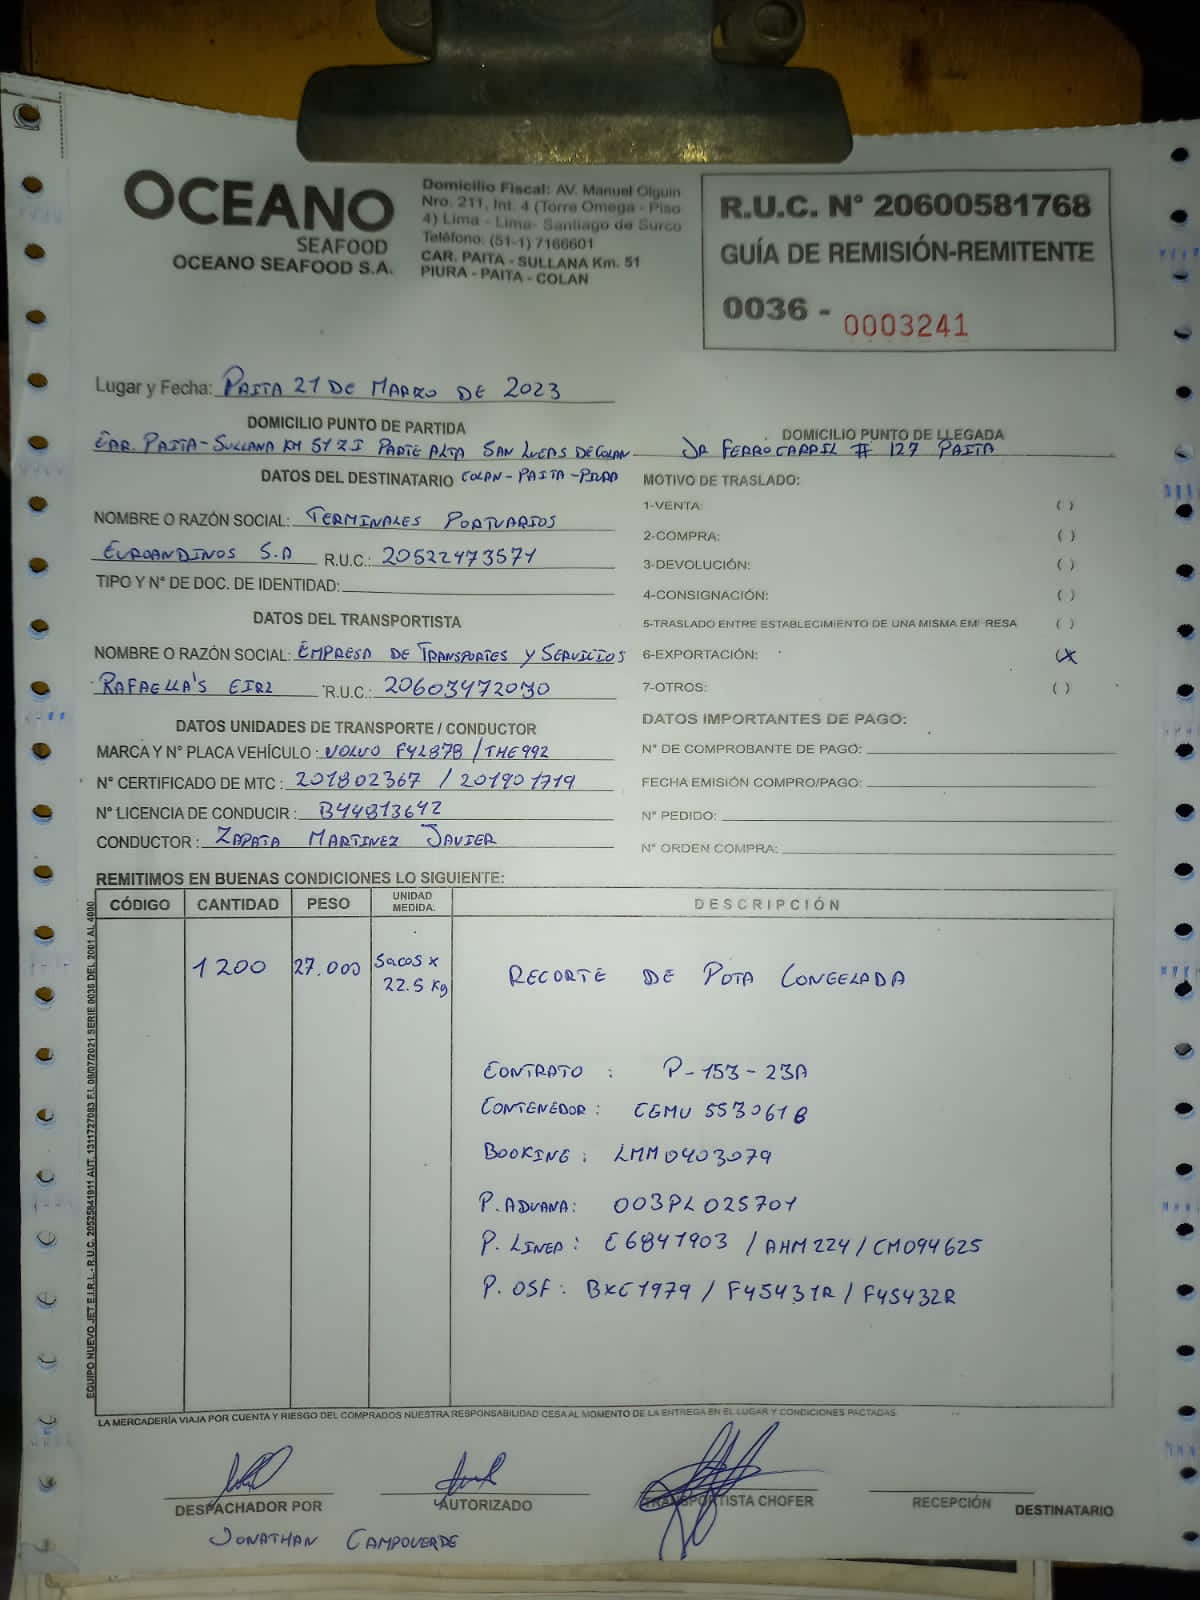 OCEANO
SEAFOOD
OCEANO SEAFOOD S.A.
Domicilio Fiscal: AV. Manuel Olguin
Nro. 211, Int. 4 (Torre Omega - Piso
4) Lima - Lima- Santiago de Surco
Teléfono: (51-1) 7166601
CAR. PAITA - SULLANA Km. 51
PIURA - PAITA - COLAN
R.U.C. N° 20600581768
GUÍA DE REMISIÓN-REMITENTE
0036 - 0003241
Lugar y Fecha: PAITA 21 DE MARZO DE 2023
DOMICILIO PUNTO DE PARTIDA
CAR. PAITA-SULLANA KM 51 Z I PARTE ALTA SAN LUCAS DE COLAN
COLAN-PAITA-PIURA
DOMICILIO PUNTO DE LLEGADA
JR FERROCARRIL # 127 PAITA
DATOS DEL DESTINATARIO
NOMBRE O RAZÓN SOCIAL: TERMINALES PORTUARIOS
EUROANDINOS S.A R.U.C.: 20522473571
TIPO Y N° DE DOC. DE IDENTIDAD:
DATOS DEL TRANSPORTISTA
NOMBRE O RAZÓN SOCIAL: EMPRESA DE TRANSPORTES Y SERVICIOS
RAFAELLA'S EIRL R.U.C.: 20603472030
DATOS UNIDADES DE TRANSPORTE / CONDUCTOR
MARCA Y N° PLACA VEHÍCULO: VOLVO F4L878 / THE992
N° CERTIFICADO DE MTC: 201802367 / 201901719
N° LICENCIA DE CONDUCIR: B44813642
CONDUCTOR: ZAPATA MARTINEZ JAVIER
MOTIVO DE TRASLADO:
1-VENTA: ( )
2-COMPRA: ( )
3-DEVOLUCIÓN: ( )
4-CONSIGNACIÓN: ( )
5-TRASLADO ENTRE ESTABLECIMIENTO DE UNA MISMA EMPRESA ( )
6-EXPORTACIÓN: (X)
7-OTROS: ( )
DATOS IMPORTANTES DE PAGO:
N° DE COMPROBANTE DE PAGO:
FECHA EMISIÓN COMPRO/PAGO:
N° PEDIDO:
N° ORDEN COMPRA:
REMITIMOS EN BUENAS CONDICIONES LO SIGUIENTE:
CÓDIGO CANTIDAD PESO UNIDAD MEDIDA. DESCRIPCIÓN
1200 27.000 Sacos x 22.5 Kg RECORTE DE POTA CONGELADA
CONTRATO : P-153-23A
CONTENEDOR : CGMU 553061 8
BOOKING : LMM0403079
P. ADUANA: 003PL025701
P. LINEA: C6841903 / AHM224 / CM094625
P. OSF: BXC1979 / F45431R / F45432R
EQUIPO NUEVO JET E.I.R.L - R.U.C. 20525841911 AUT. 1311727083 F.I. 08/07/2021 SERIE 0036 DEL 2001 AL 4000
LA MERCADERÍA VIAJA POR CUENTA Y RIESGO DEL COMPRADOS NUESTRA RESPONSABILIDAD CESA AL MOMENTO DE LA ENTREGA EN EL LUGAR Y CONDICIONES PACTADAS
DESPACHADOR POR
JONATHAN CAMPOVERDE
AUTORIZADO
TRANSPORTISTA CHOFER
RECEPCIÓN DESTINATARIO